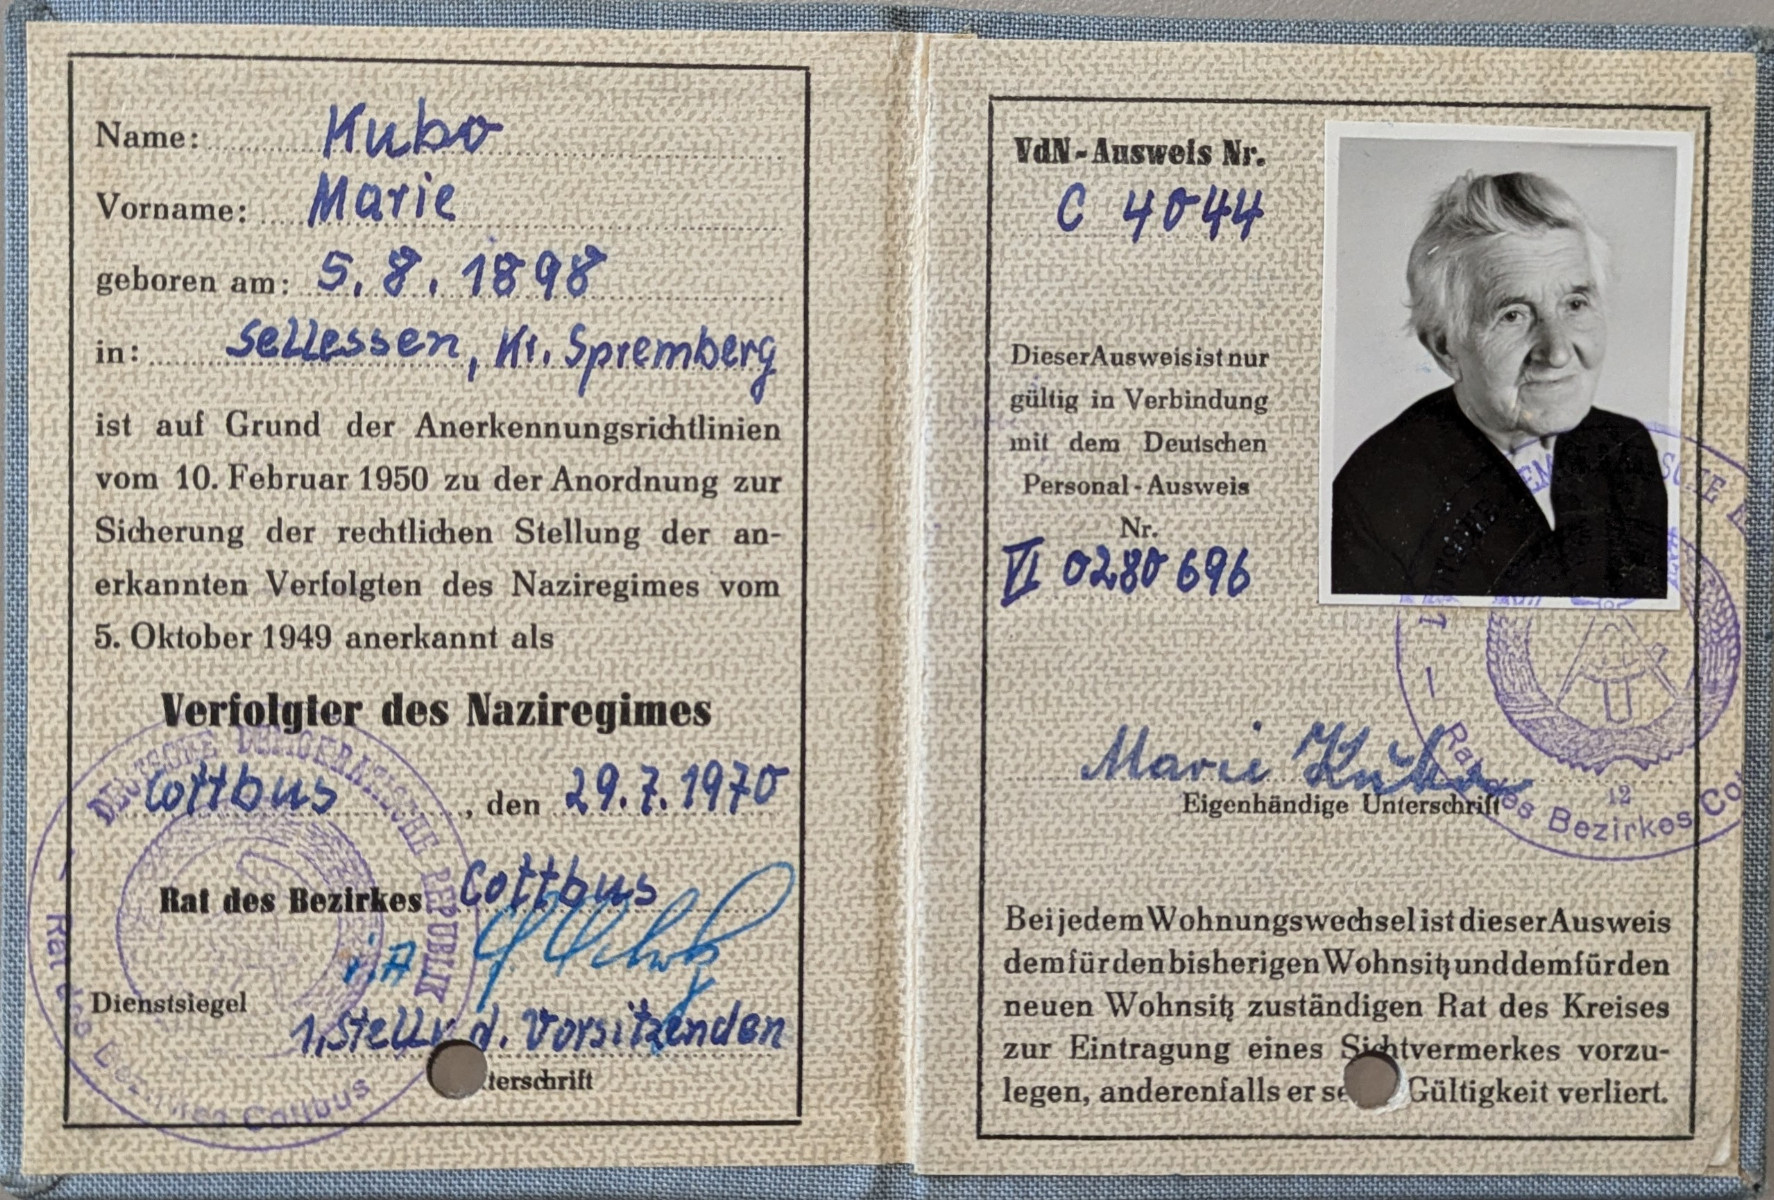 Name: Kubo
Vorname: Marie
geboren am: 5. 8. 1898
in: Sellessen, Kr. Spremberg
ist auf Grund der Anerkennungsrichtlinien
vom 10. Februar 1950 zu der Anordnung zur
Sicherung der rechtlichen Stellung der an-
erkannten Verfolgten des Naziregimes vom
5. Oktober 1949 anerkannt als
Verfolgter des Naziregimes
Cottbus, den 29.7.1970
Rat des Bezirkes Cottbus
i.A.
Dienstsiegel
1. Stellv. d. Vorsitzenden
terschrift
DEUTSCHE DEMOKRATISCHE REPUBLIK
Rat des Bezirkes Cottbus
VdN-Ausweis Nr.
C 4044
Dieser Ausweis ist nur
gültig in Verbindung
mit dem Deutschen
Personal-Ausweis
Nr.
VI 0280 696
Marie Kubo
Eigenhändige Unterschrift
Rat des Bezirkes Co
12
Bei jedem Wohnungswechsel ist dieser Ausweis
dem für den bisherigen Wohnsitz und dem für den
neuen Wohnsitz zuständigen Rat des Kreises
zur Eintragung eines Sichtvermerkes vorzu-
legen, anderenfalls er se Gültigkeit verliert.